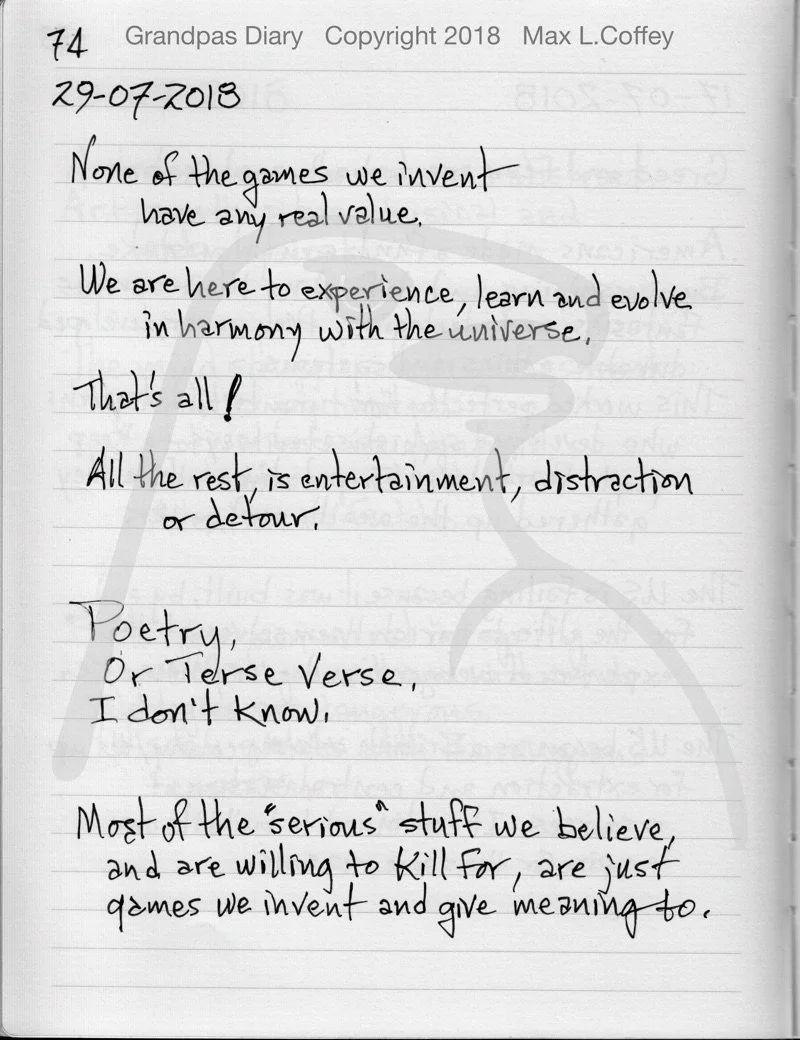 74 Grandpas Diary Copyright 2018 Max L.Coffey
29-07-2018
None of the games we invent
have any real value.
We are here to experience, learn and evolve
in harmony with the universe.
That's all!
All the rest, is entertainment, distraction
or detour.
Poetry,
Or Terse Verse,
I don't know.
Most of the "serious" stuff we believe,
and are willing to kill for, are just
games we invent and give meaning to.